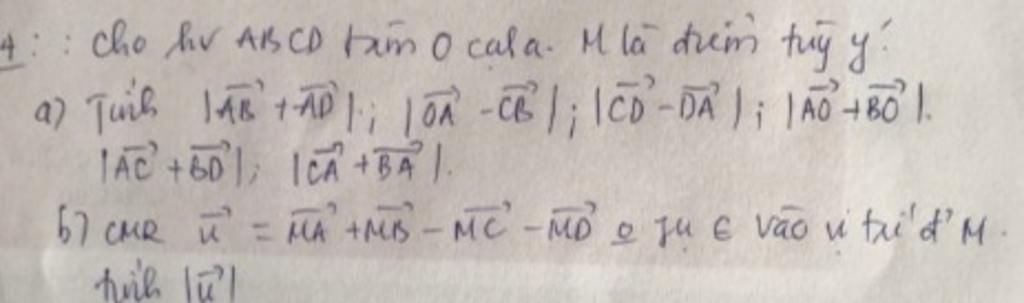 4: : Cho hv ABCD tâm O cạl a. M là điểm tuỳ ý.
a) Tính |\overrightarrow{AB} + \overrightarrow{AD}|; |\overrightarrow{OA} - \overrightarrow{CB}|; |\overrightarrow{CD} - \overrightarrow{DA}|; |\overrightarrow{AO} + \overrightarrow{BO}|.
|\overrightarrow{AC} + \overrightarrow{BD}|; |\overrightarrow{CA} + \overrightarrow{BA}|.
b) CMR \overrightarrow{u} = \overrightarrow{MA} + \overrightarrow{MB} - \overrightarrow{MC} - \overrightarrow{MD} vào vị trí đ' M.
tính |\overrightarrow{u}|